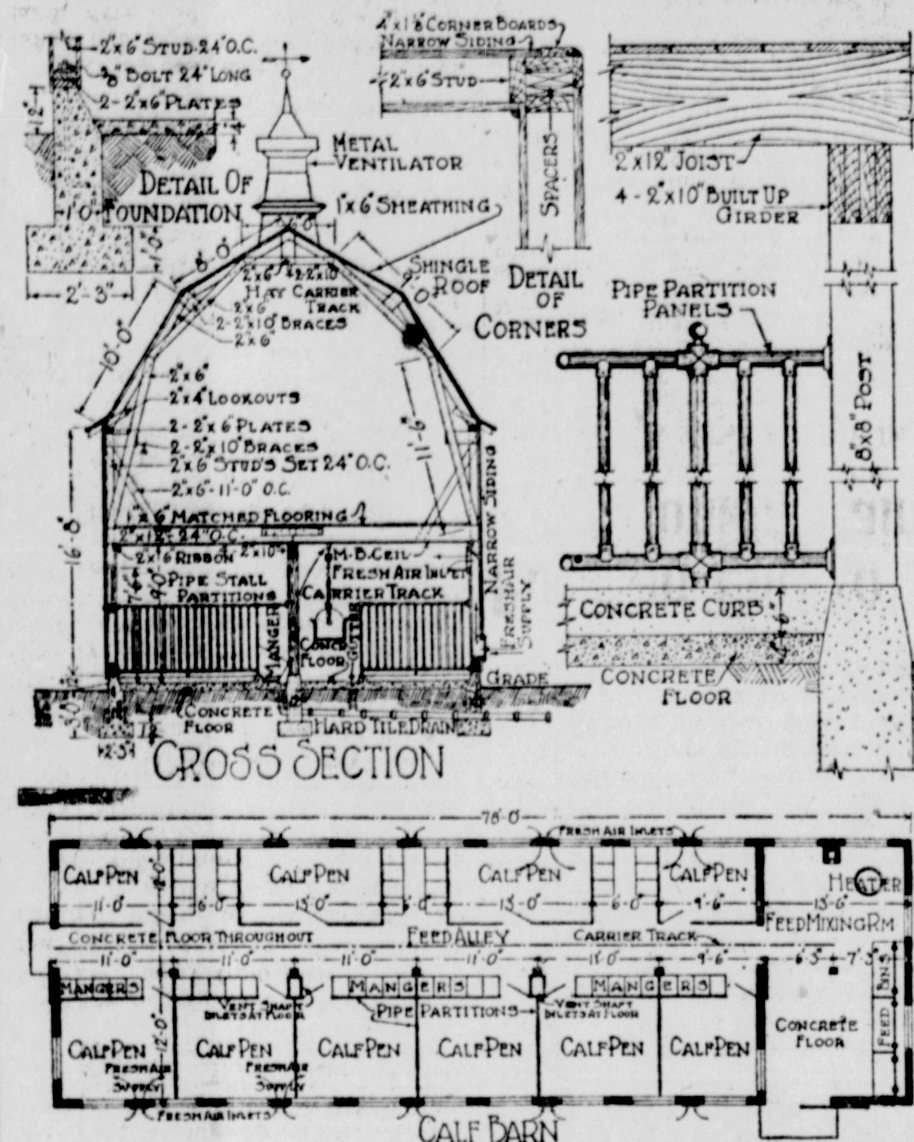 2"x6" STUD-24" O.C.
BOLT 24" LONG
2-2"x6" PLATES
12"
DETAIL OF
FOUNDATION
1'0"
1'-0"
2'-3"
METAL
VENTILATOR
1"x6" SHEATHING
SHINGLE
ROOF
8'-0"
10'-0"
2"x6"
2-2"x10"
HAY CARRIER
TRACK
2"x6"
2-2"x10" BRACES
2"x6"
2"x6"
2"x4" LOOKOUTS
2-2"x6" PLATES
2-2"x10" BRACES
2"x6" STUD'S SET 24" O.C.
2"x6"-11'-0" O.C.
11'-6"
16'-8"
1"x6" MATCHED FLOORING
2"x12"-24" O.C.
2"x10"
M.B. CEIL
FRESH AIR INLET
CARRIER TRACK
PIPE STALL
PARTITIONS
9'-0"
MANGER
GUTTER
CONC.
FLOOR
NARROW SIDING
FRESH AIR
SUPPLY
GRADE
CONCRETE
FLOOR
HARD TILE DRAIN
CROSS SECTION
CORNER BOARDS
NARROW SIDING
2"x6" STUD
SPACERS
DETAIL
OF
CORNERS
2"x12" JOIST
4-2"x10" BUILT UP
GIRDER
PIPE PARTITION
PANELS
8"x8" POST
CONCRETE CURB
CONCRETE
FLOOR
FRESH AIR INLETS
CALF PEN
CALF PEN
CALF PEN
CALF PEN
HEATER
11'-0" 6'-0" 13'-0" 6'-0" 13'-0" 6'-0" 9'-6" 13'-6"
FEED MIXING RM
CONCRETE FLOOR THROUGHOUT
FEED ALLEY
CARRIER TRACK
11'-0" 11'-0" 11'-0" 11'-0" 11'-0" 9'-6" 6'-3" 7'-3"
MANGERS
MANGERS
MANGERS
VENT SHAFT
INLETS AT FLOOR
PIPE PARTITIONS
VENT SHAFT
INLETS AT FLOOR
12'-0"
CALF PEN
CALF PEN
CALF PEN
CALF PEN
CALF PEN
CALF PEN
CONCRETE
FLOOR
FEED BINS
FRESH AIR
SUPPLY
FRESH AIR
SUPPLY
FRESH AIR INLETS
CALF BARN